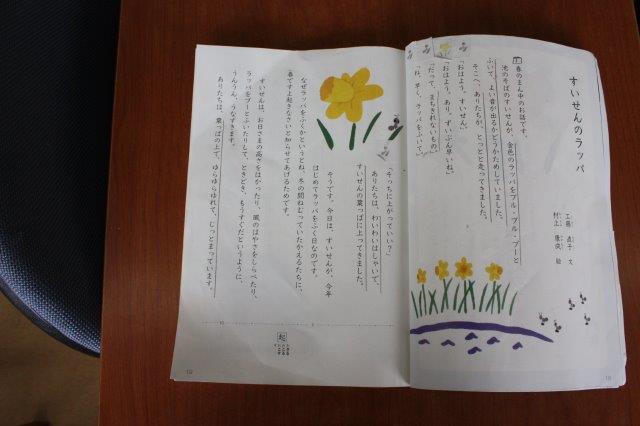 すいせんのラッパ
工藤 直子 文
村上 康成 絵
春のまん中のお話です。
池のそばのすいせんが、金色のラッパをプル・プル・プーと
ふいて、よい音が出るかどうかためしていました。
そこへ、ありたちが、とっとと走ってきました。
「おはよう、すいせん」
「おはよう、あり。ずいぶん早いね」
「だって、まちきれないもの。
「ね、早く、ラッパをふいて」
「そっちに上がっていい？」
ありたちは、わいわいはしゃいで、
すいせんの葉っぱに上ってきました。
そうです。今日は、すいせんが、今年
はじめてラッパをふく日なのです。
なぜラッパをふくかというとね、冬の間ねむっていたかえるたちに、
「春ですよ起きなさいと知らせてあげるためです。
すいせんは、お日さまの高さをはかったり、風のはやさをしらべたり、
ラッパをプーとふいたりして、ときどき、もうすぐだというように、
うんうん、うなずきます。
ありたちは、葉っぱの上で、ゆらゆらゆれて、じっとまっています。
起